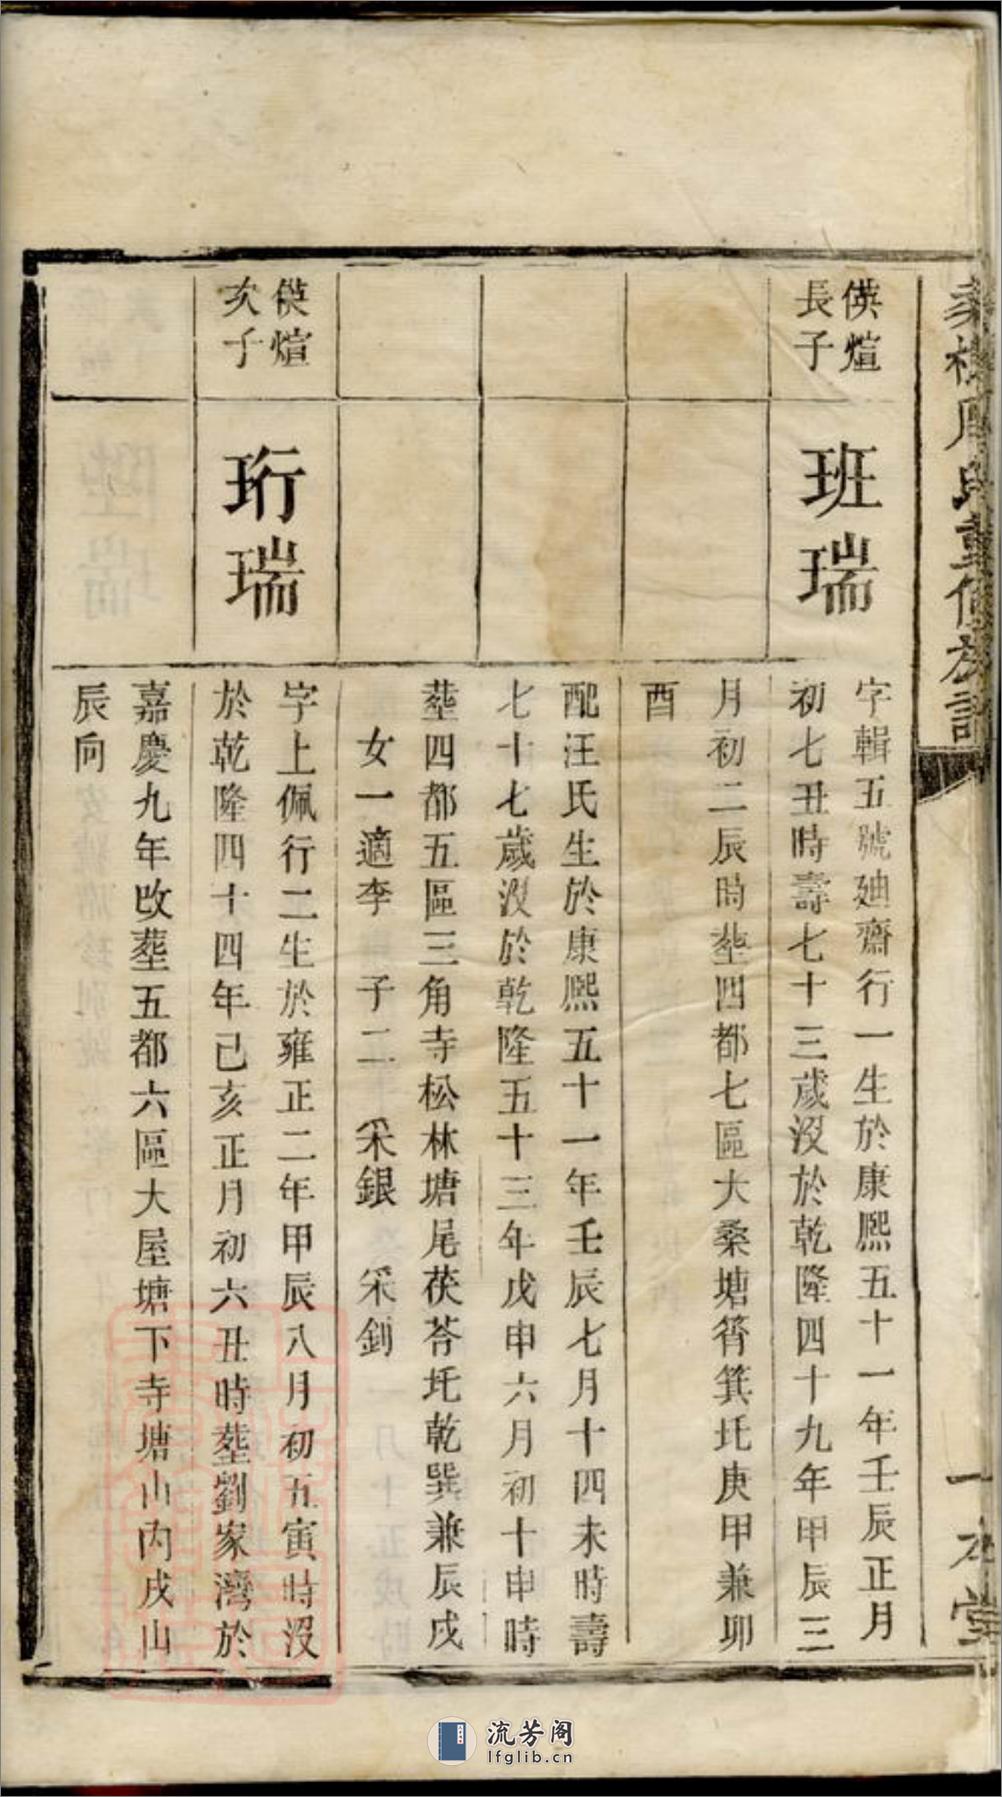 氏重修族譜
一本堂
傼煊
長子
班瑞
字輯五號廸齋行一生於康熙五十一年壬辰正月
初七丑時壽七十三歲沒於乾隆四十九年甲辰三
月初二辰時塟四都七區大桑塘筲箕圫庚甲兼卯
酉
配汪氏生於康熙五十一年壬辰七月十四未時壽
七十七歲沒於乾隆五十三年戊申六月初十申時
塟四都五區三角寺松林塘尾茯苓圫乾巽兼辰戌
女一適李 子二 采銀 采釗
傼煊
次子
珩瑞
字上佩行二生於雍正二年甲辰八月初五寅時沒
於乾隆四十四年己亥正月初六丑時塟劉家灣於
嘉慶九年改塟五都六區大屋塘下寺塘山內戌山
辰向
流芳阁
lfglib.cn